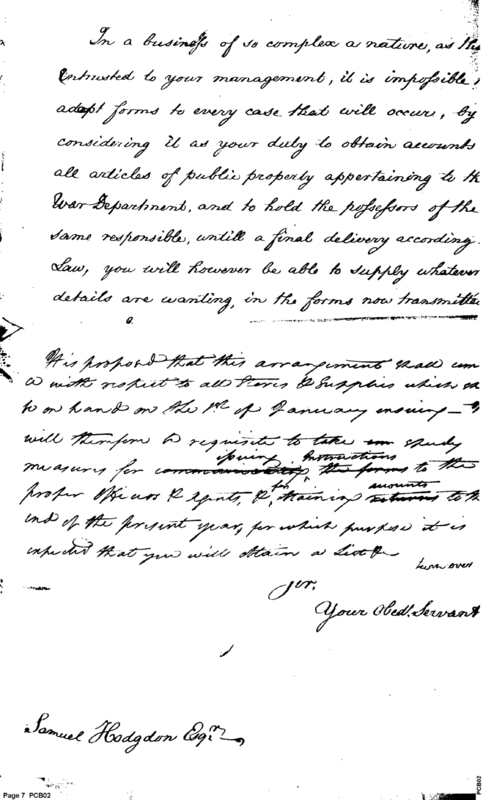 In a business of so complex a nature, as this
Entrusted to your management, it is impossible
adapt forms to every case that will occur, by
considering it as your duty to obtain accounts
all articles of public property appertaining to th
War Department, and to hold the possessors of the
same responsible, untill a final delivery according
Law, you will however be able to supply whatever
details are wanting, in the forms now transmitte
It is proposed that this arrangement shall
with respect to all Stores & Supplies which
be on hand on the 1st of January ensuing —
will therefore be requisite to take study
issuing Instructions
measures for the forms to the
proper Officers & Agents, & for obtaining accounts returns to the
end of the present year, for which purpose it is
expected that you will obtain a List &
turn over
Your Obed. Servant
Samuel Hodgdon Esqr.
Page 7 PCB02
PCB02